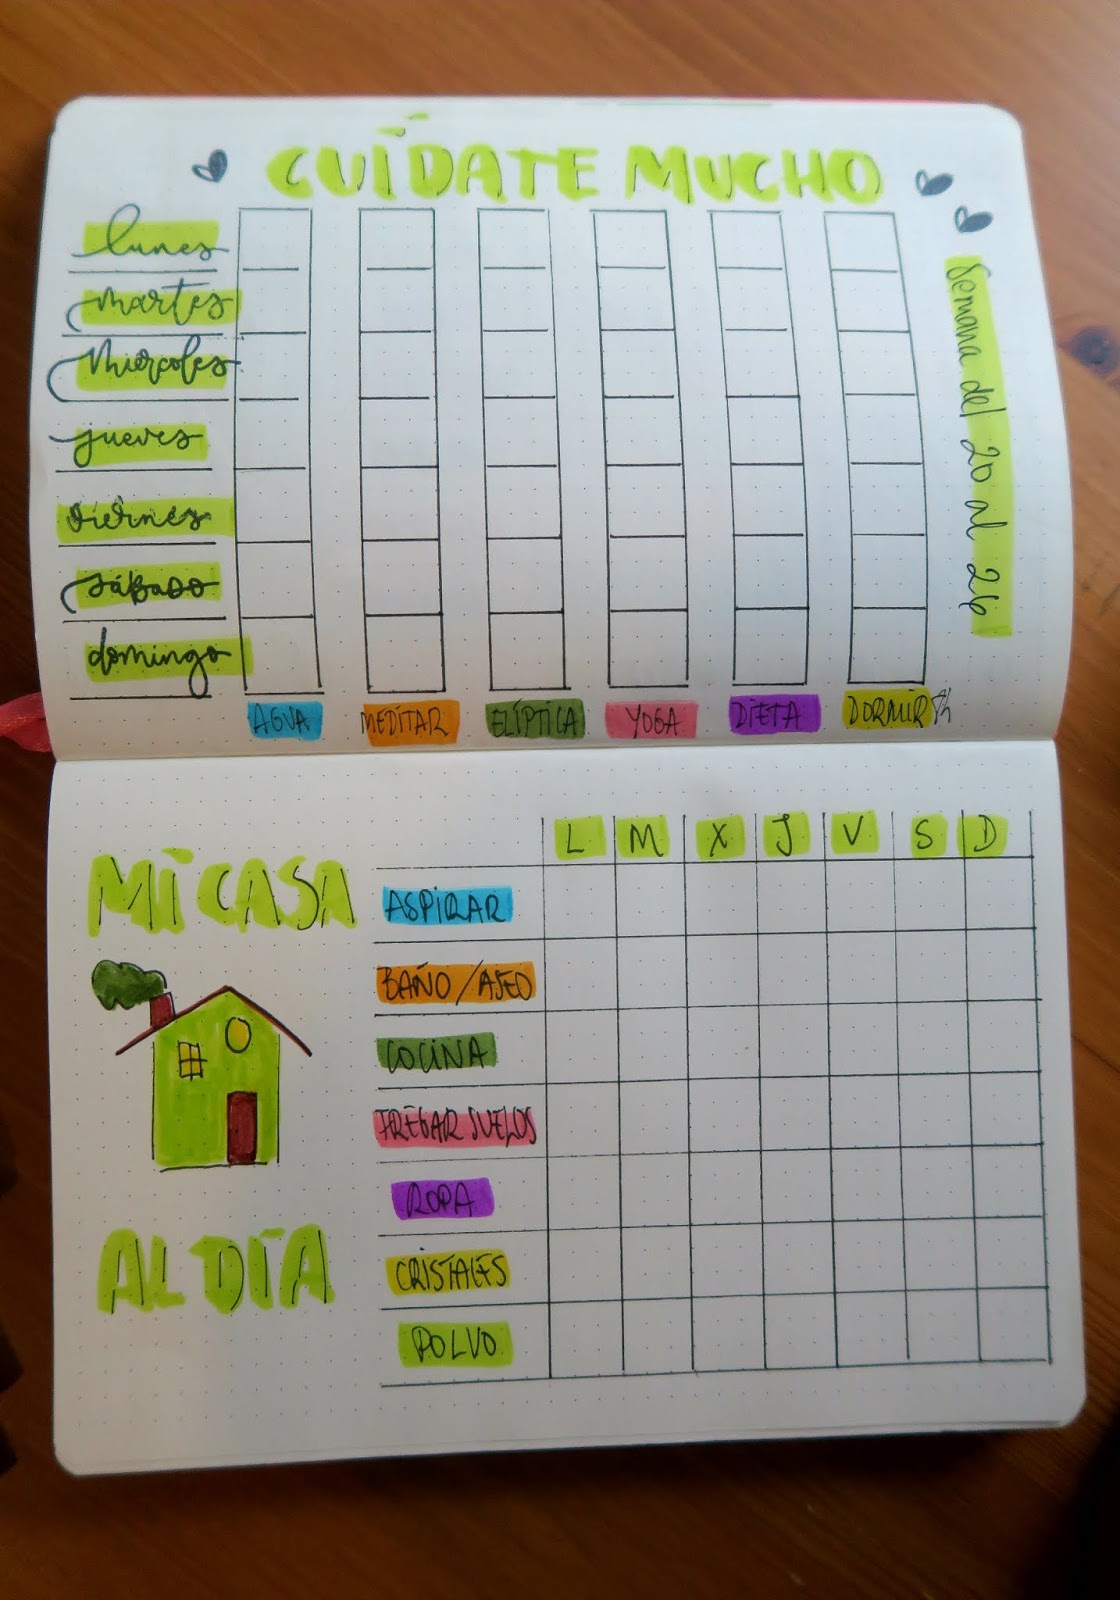 CUÍDATE MUCHO
lunes
martes
Miércoles
jueves
viernes
sábado
domingo
AGUA MEDITAR ELÍPTICA YOGA DIETA DORMIR 8h
Semana del 20 al 26
MI CASA
AL DÍA
L M X J V S D
ASPIRAR
BAÑO/ASEO
COCINA
FREGAR SUELOS
ROPA
CRISTALES
POLVO